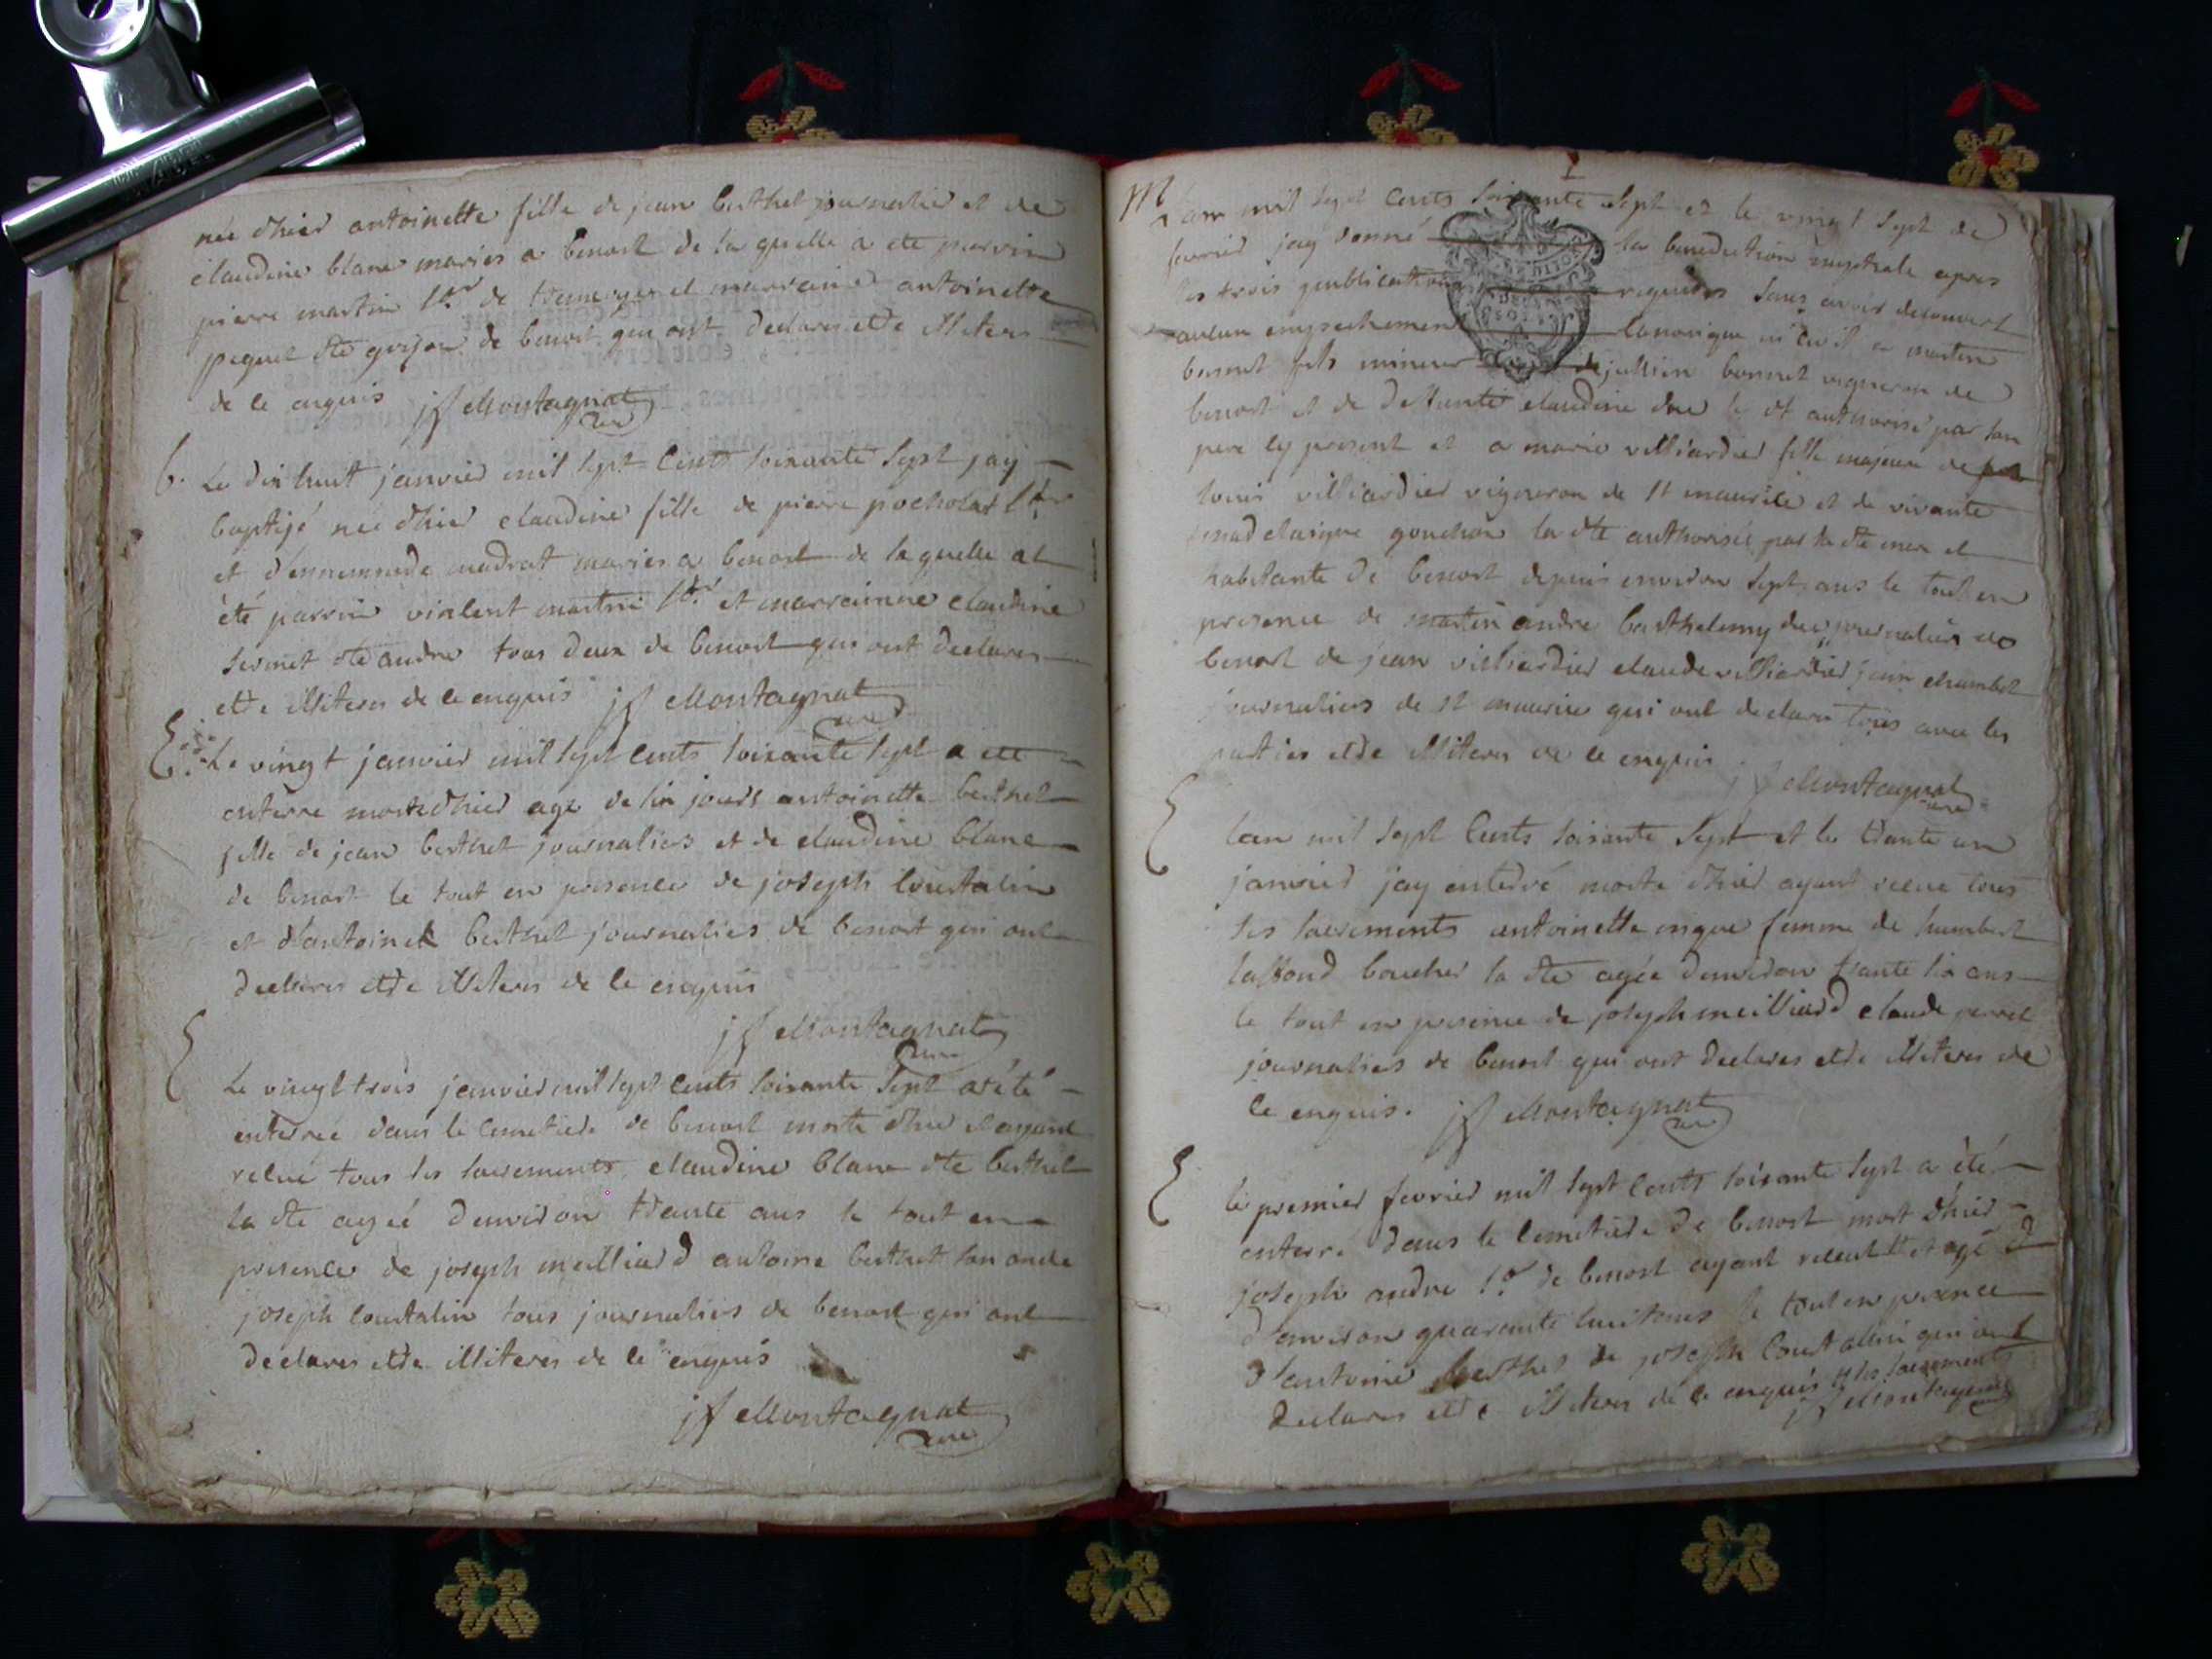 née d'hier antoinette fille de jean berthet journalier et de
claudine blanc mariés a benost de la quelle a ete parrin
pierre martin de et marraine antoinette
pequet dte grizon de benost qui ont declarés etre illiteres
de ce enquis jf Montagnat curé
b. Le dix huit janvier mil sept cents soixante sept jay
baptisé née d'hier claudine fille de pierre pocholat
et d'ennemonde cuadrat mariés a benost de la quelle at
été parrin vinlent martin et marrainne claudine
sermet dte andre tous deux de benost qui ont declarés
etre illiteres de ce enquis jf Montagnat curé
Le vingt janvier mil sept cents soixante sept a ete
enterre morte d'hier age de six jours antoinette berthet
fille de jean berthet journaliers et de claudine blanc
de benost le tout en presence de joseph Coustalin
et d'antoine berthet journaliers de benost qui ont
declarés etre illiteres de ce enquis
jf Montagnat curé
Le vingt trois janvier mil sept cents soixante sept at été
enterrée dans le cimetiere de benost morte d'hier et ayant
recue tous les sacrements claudine blanc dte berthet
la dte agéé d'environ trante ans le tout en
presence de joseph meilliard antoine berthet son oncle
joseph Coustalin tous journaliers de benost qui ont
declarés etre illiteres de ce enquis
jf Montagnat curé
M
Lan mil sept cents soixante sept et le vingt sept de
fevrier jay donné la benediction nuptiale apres
les trois publications requises sans avoir decouvert
aulun empechement canonique ni civil a martin
bonnet fils mineur de jullien bonnet vigneron de
benost et de deffunte claudine due le dt authorisé par son
pere cy present et a marie villiardier fille majeure de
louis villiardier vigneron de st maurice et de vivante
gouchon la dte authorisée par la dte mere et
habitante de benost depuis environ sept ans le tout en
presence de martin andre barthelemy due journaliers de
benost de jean villiardier claude villiardier jean chambet
journaliers de st maurice qui ont declaré tous avec les
parties etre illiteres de ce enquis
jf Montagnat curé
lan mil sept cents soixante sept et le trante un
janvier jay enterré morte d'hier ayant recue tous
les sacrements antoinette femme de humbert
laffond boucher la dte agée d'environ trante six ans
le tout en presence de joseph meilliard claude
journaliers de benost qui ont declarés etre illiteres de
ce enquis. jf Montagnat curé
le premier fevrier mil sept cents soixante sept a été
enterré dans le cimetiere de benost mort d'hier
joseph andre de benost ayant receut # et agé
d'environ quarante huit ans le tout en presence
d'antoine berthet de joseph Coustalin qui ont
declarés etre illiteres de ce enquis # les sacrements
jf Montagnat